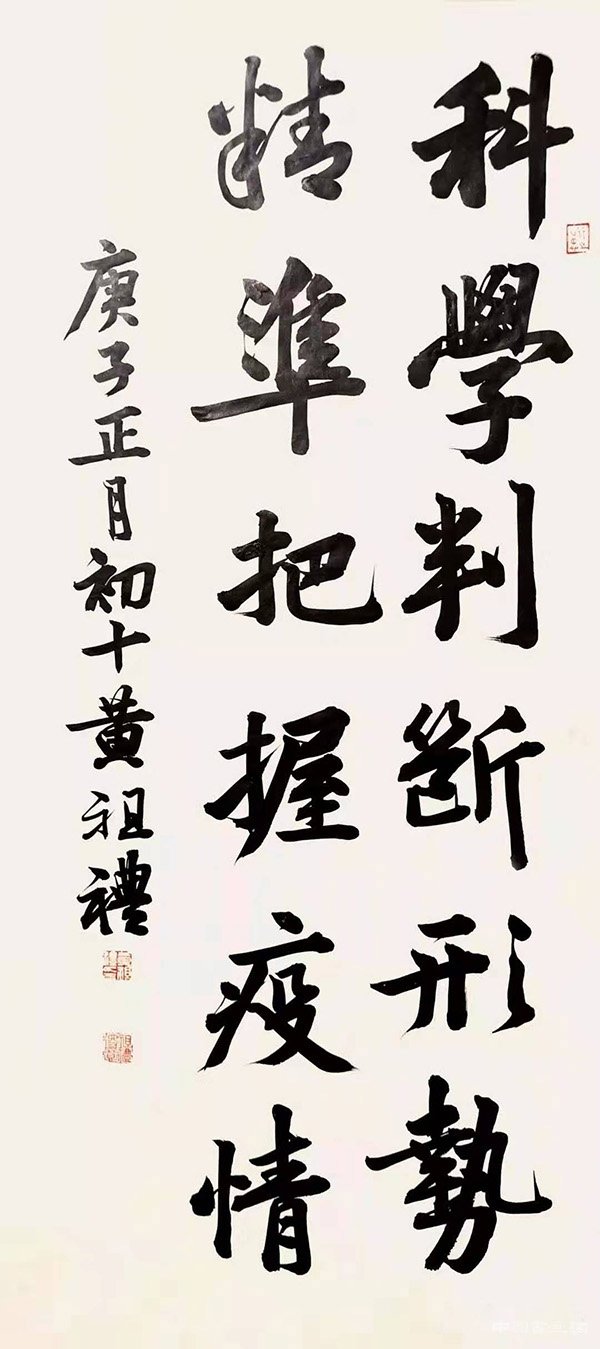 科學判斷形勢
精準把握疫情
庚子正月初十黃祖禮